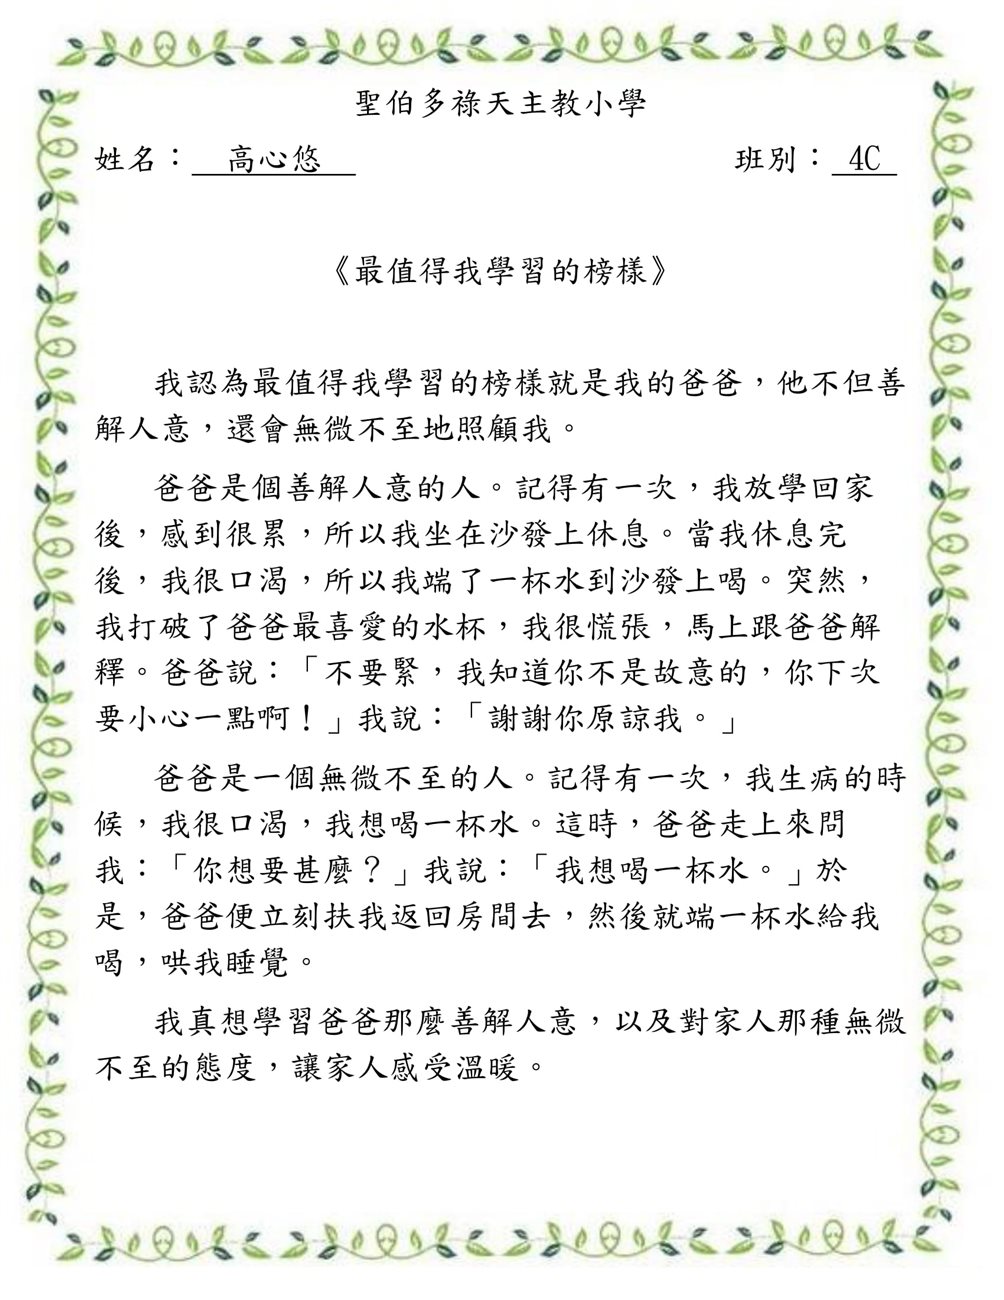 聖伯多祿天主教小學
姓名：　高心悠　　班別： 4C
《最值得我學習的榜樣》
我認為最值得我學習的榜樣就是我的爸爸，他不但善
解人意，還會無微不至地照顧我。
爸爸是個善解人意的人。記得有一次，我放學回家
後，感到很累，所以我坐在沙發上休息。當我休息完
後，我很口渴，所以我端了一杯水到沙發上喝。突然，
我打破了爸爸最喜愛的水杯，我很慌張，馬上跟爸爸解
釋。爸爸說：「不要緊，我知道你不是故意的，你下次
要小心一點啊！」我說：「謝謝你原諒我。」
爸爸是一個無微不至的人。記得有一次，我生病的時
候，我很口渴，我想喝一杯水。這時，爸爸走上來問
我：「你想要甚麼？」我說：「我想喝一杯水。」於
是，爸爸便立刻扶我返回房間去，然後就端一杯水給我
喝，哄我睡覺。
我真想學習爸爸那麼善解人意，以及對家人那種無微
不至的態度，讓家人感受溫暖。